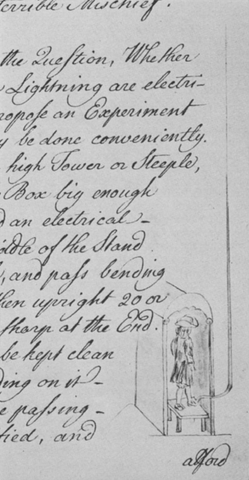 terrible Mischief.
the Question, Whether
Lightning are electri-
propose an Experiment
be done conveniently.
high Tower or Steeple,
Box big enough
an electrical-
middle of the Stand
, and pass bending
then upright 20 or
sharp at the End.
be kept clean
ding on it-
e passing-
tied, and
afford